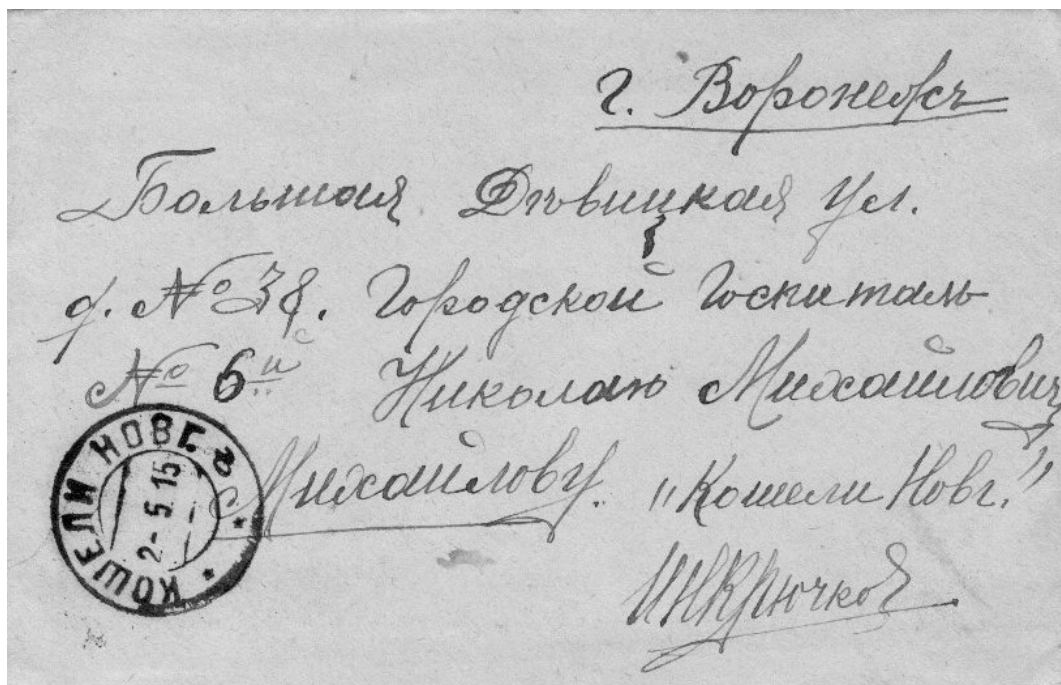 г. Воронежъ
Большая Дѣвицкая ул.
д. № 38. Городской Госпиталь
№ 6й Николаю Михайлович
Михайлову. "Кошели Новг."
ИНКрючков
КОШЕЛИ НОВГ. г.
2-5.15